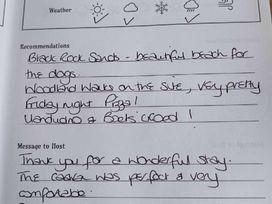 Weather
Recommendations
Black Rock Sands - beautiful beach for
the dogs.
Woodland Walks on the site, very pretty
Friday night Pizza!
& Books!
Message to Host
Thank you for a wonderful stay.
The was perfect & very
comfortable.